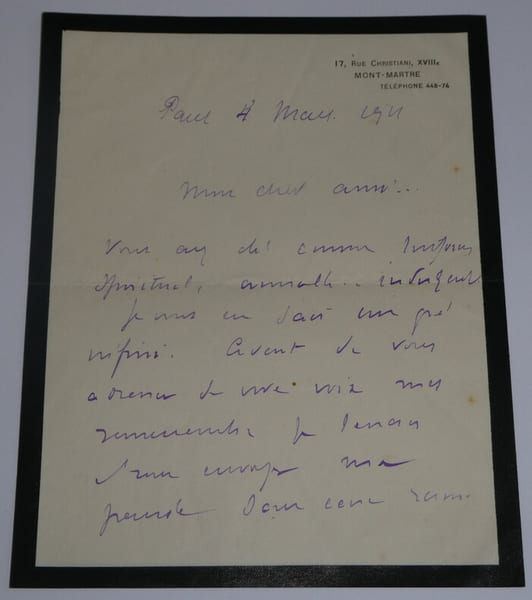 17, RUE CHRISTIANI, XVIIIe
MONT-MARTRE
TÉLÉPHONE 448-74
4 Mars 1911
Mon cher ami...
Vous avez été comme toujours
spirituel, aimable.. indulgent
Je vous en sais un gré
infini. Avant de vous
adresser de vive voix mes
remerciements je tenais
à vous envoyer ma
pensée dans